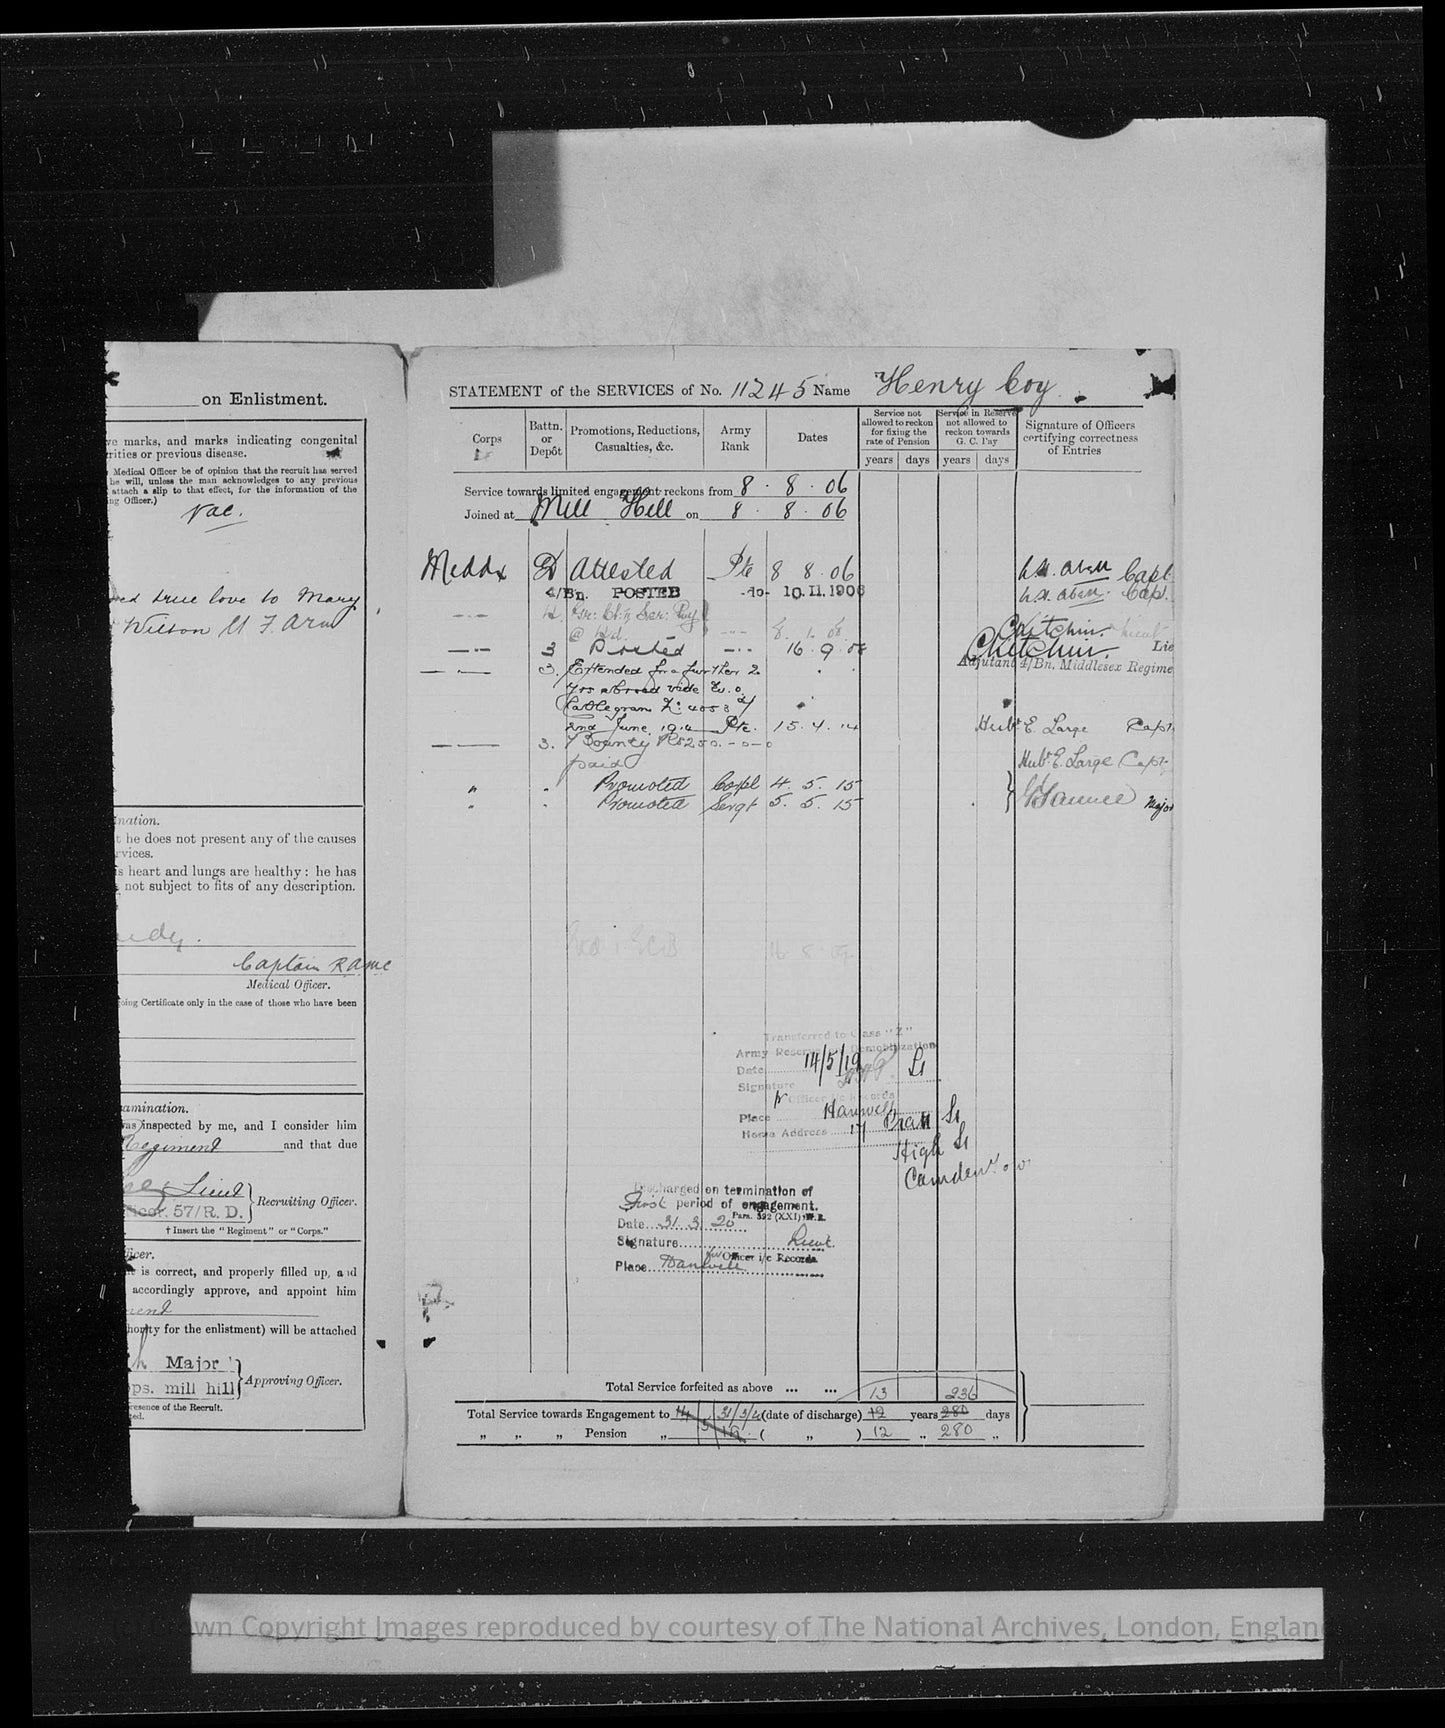 on Enlistment.
ve marks, and marks indicating congenital
rities or previous disease.
Medical Officer be of opinion that the recruit has served
he will, unless the man acknowledges to any previous
attach a slip to that effect, for the information of the
ng Officer.)
Vac.
true love to Mary
Wilson
nation.
t he does not present any of the causes
rvices.
is heart and lungs are healthy: he has
not subject to fits of any description.
Captain RAMC
Medical Officer.
oing Certificate only in the case of those who have been
amination.
was inspected by me, and I consider him
Regiment and that due
Lieut
Recruiting Officer.
ficer. 57/R. D.
† Insert the "Regiment" or "Corps."
ficer.
is correct, and properly filled up, and
accordingly approve, and appoint him
ment
hority for the enlistment) will be attached
Major
ps. mill hill
Approving Officer.
resence of the Recruit.
ted.
STATEMENT of the SERVICES of No. 11245 Name Henry Coy
Corps
Battn. or Depôt
Promotions, Reductions, Casualties, &c.
Army Rank
Dates
Service not allowed to reckon for fixing the rate of Pension
years days
Service in Reserve not allowed to reckon towards G. C. Pay
years days
Signature of Officers certifying correctness of Entries
Service towards limited engagement reckons from 8 . 8 . 06
Joined at Mill Hill on 8 . 8 . 06
Middx D Attested Pte 8 8 . 06 Capt
4/Bn. POSTED -do- 10.11.1906 Capt.
Ser: Pay
Chitchin. Lieut
3 Posted 16 . 9 . 08 Chitchin. Lie
Adjutant 4/Bn. Middlesex Regime
3. Extended for a further 2
yrs abroad vide
Cablegram No: 4053 d/
2nd June 1914 Pte. 15 . 4 . 14 Hubt E. Large Capt.
3. Bounty Rs250 -0-0
paid Hubt E. Large Capt.
" Promoted Corpl 4 . 5 . 15
" Promoted Sergt 5 . 5 . 15 Major
Transferred to Class "Z"
Army Reserve on Demobilization
Date 14/5/19
Signature Lt
Officer i/c Records
Place Hanwell
Home Address 17 Pratt St
High St
Camden
Discharged on termination of
First period of engagement.
Para. 392 (XXI) K.R.
Date 31 . 3 . 20
Signature Lieut.
for Officer i/c Records
Place Hanwell
Total Service forfeited as above ... ... 13 236
Total Service towards Engagement to 31/3/20 (date of discharge) 12 years 280 days
" " " Pension " ( " ) 12 " 280 "
Crown Copyright Images reproduced by courtesy of The National Archives, London, England